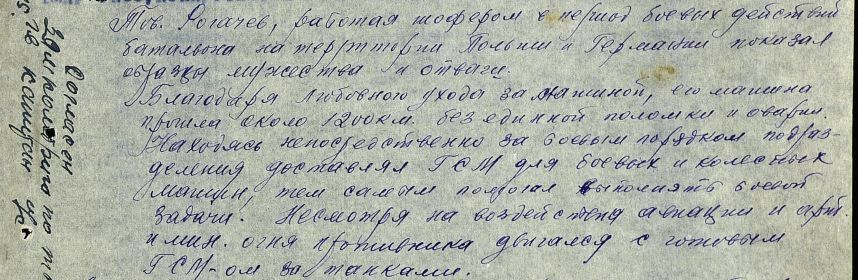 Тов. Рогачев, работая шофером в период боевых действий
батальона на территории Польши и Германии показал
образцы мужества и отваги.
Благодаря любовного ухода за машиной, его машина
прошла около 1200км. без единной поломки и аварии.
Находясь непосредственно за боевым порядком подраз-
деления доставлял ГСМ для боевых и колесных
машин, тем самым помогал выполнять боевой
задачи. Несмотря на воздействия авиации и арт.
и мин. огня противника двигался с готовым
ГСМ-ом за танками.
Согласен
капитан